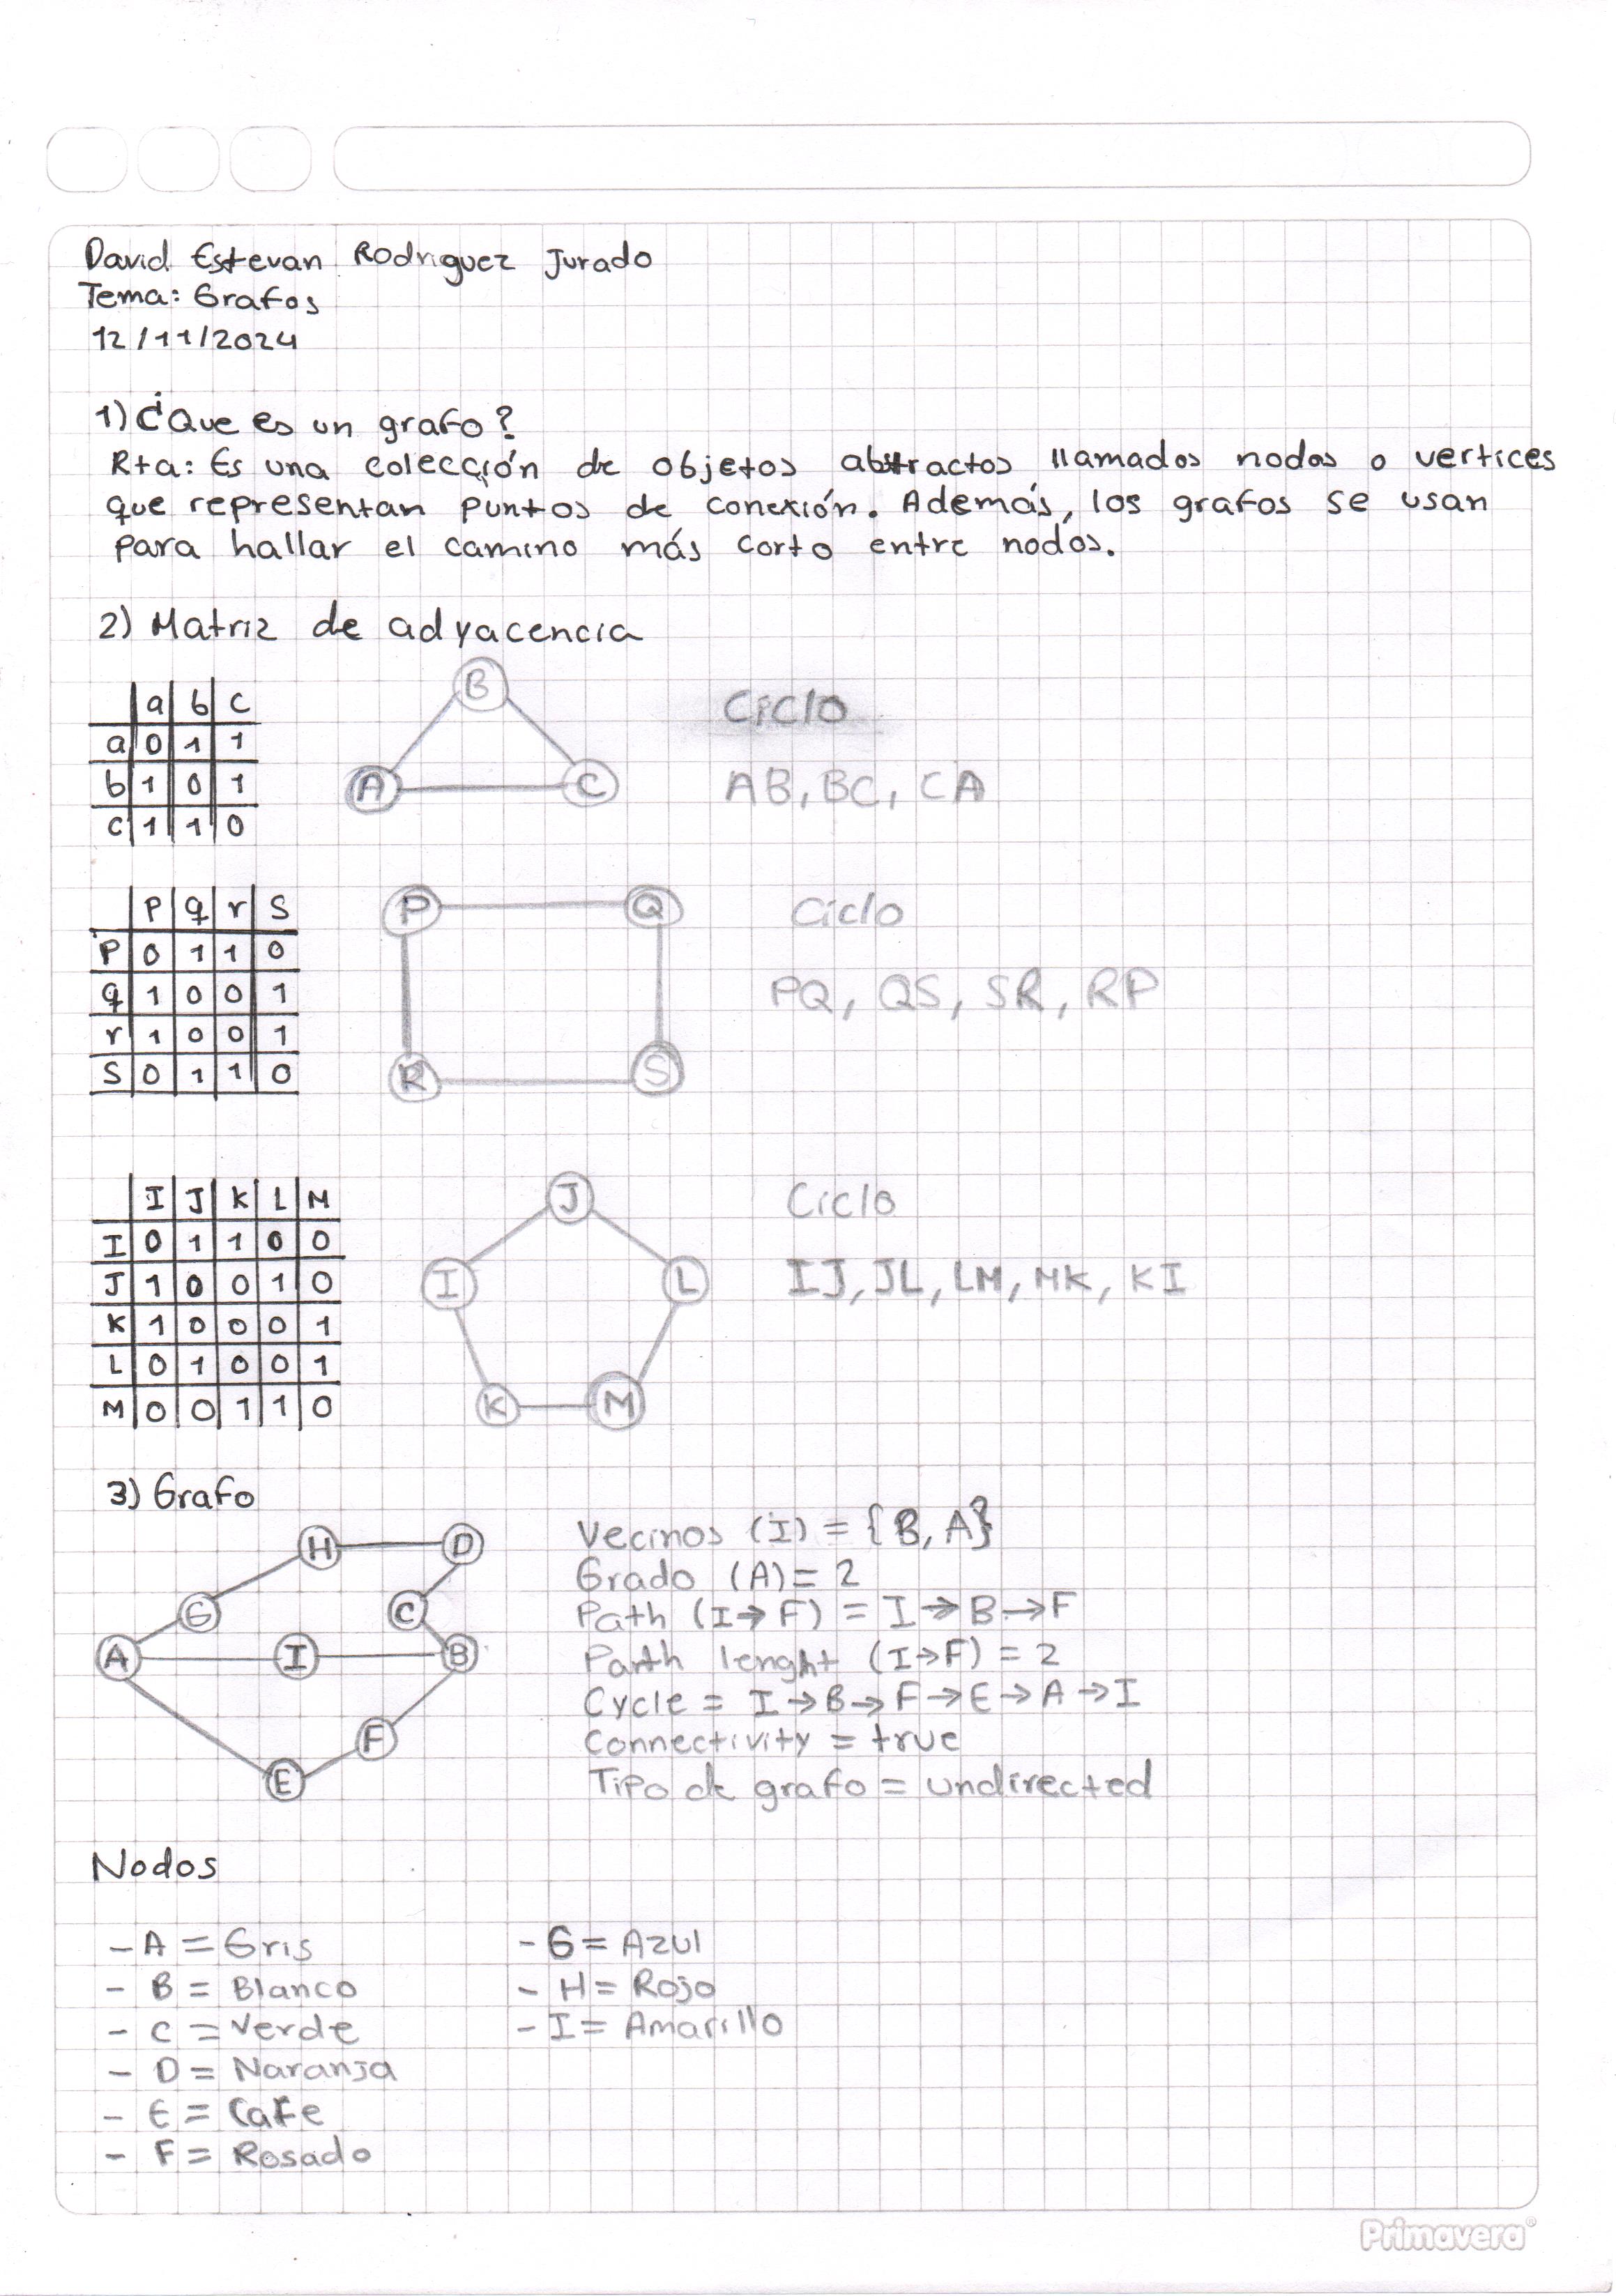 David Estevan Rodriguez Jurado
Tema: Grafos
12/11/2024
1) ¿Que es un grafo?
Rta: Es una colección de objetos abstractos llamados nodos o vertices
que representan puntos de conexión. Además, los grafos se usan
para hallar el camino más corto entre nodos.
2) Matriz de adyacencia
a b c
a 0 1 1
b 1 0 1
c 1 1 0
B
A C
Ciclo
AB, BC, CA
P q r S
P 0 1 1 0
q 1 0 0 1
r 1 0 0 1
S 0 1 1 0
P Q
R S
Ciclo
PQ, QS, SR, RP
I J K L M
I 0 1 1 0 0
J 1 0 0 1 0
K 1 0 0 0 1
L 0 1 0 0 1
M 0 0 1 1 0
J
I L
K M
Ciclo
IJ, JL, LM, MK, KI
3) Grafo
H D
G C
A I B
F
E
Vecinos (I) = {B, A}
Grado (A) = 2
Path (I→F) = I→B→F
Parth lenght (I→F) = 2
Cycle = I→B→F→E→A→I
Connectivity = true
Tipo de grafo = undirected
Nodos
- A = Gris
- B = Blanco
- C = Verde
- D = Naranja
- E = Cafe
- F = Rosado
- G = Azul
- H = Rojo
- I = Amarillo
Primavera®